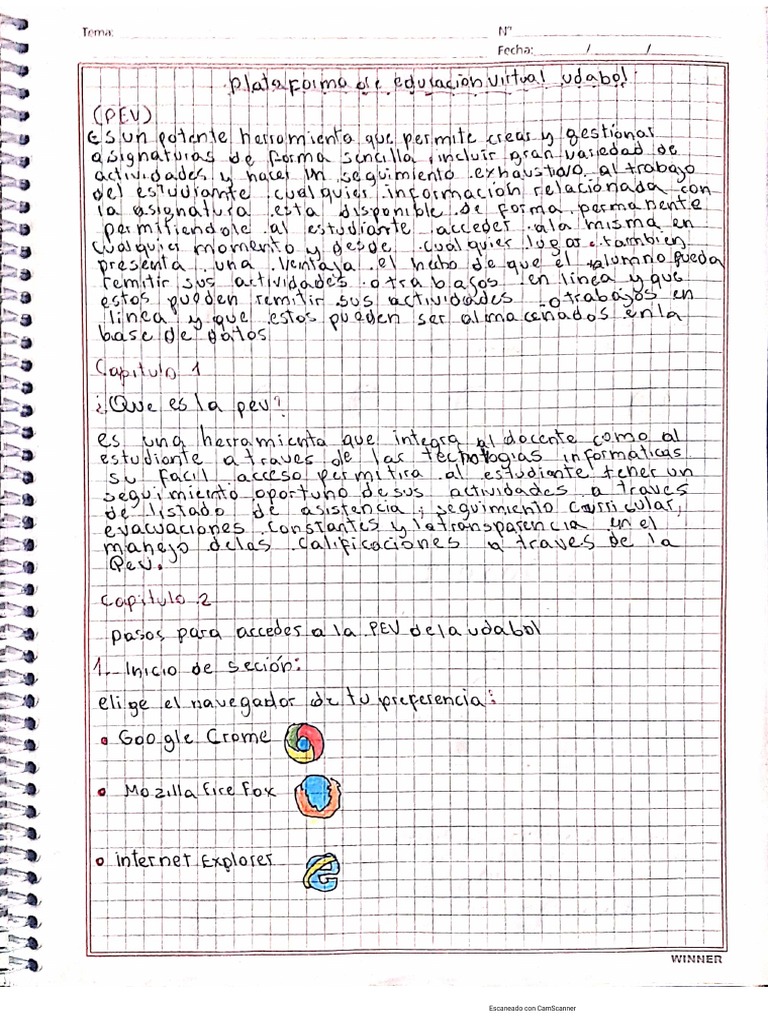 Tema:
N°
Fecha: / /
Plataforma de educacion virtual udabol
(PEV)
Es un potente herramienta que permite crear y gestionar
asignaturas de forma sencilla, incluir gran variedad de
actividades y hacer un seguimiento exhaustivo al trabajo
del estudiante cualquier informacion relacionada con
la asignatura esta disponible de forma permanente
permitiendole al estudiante acceder ala misma en
cualquier momento y desde cualquier lugar. tambien
presenta una ventaja el hecho de que el alumno pueda
remitir sus actividades o trabajos en linea y que
estos pueden remitir sus actividades o trabajos en
linea y que estos pueden ser almacenados en la
base de datos
Capitulo 1
¿Que es la pev?
es una herramienta que integra al docente como al
estudiante a traves de las tecnologias informaticas
su facil acceso permitira al estudiante tener un
seguimiento oportuno de sus actividades a traves
de listado de asistencia, seguimiento curricular,
evacuaciones constantes y la transparencia en el
manejo delas calificaciones a traves de la
Pev.
Capitulo 2
pasos para accedes a la PEV de la udabol
1. Inicio de seción:
elige el navegador de tu preferencia:
• Google Crome
• Mozilla fire fox
• internet Explorer
WINNER
Escaneado con CamScanner